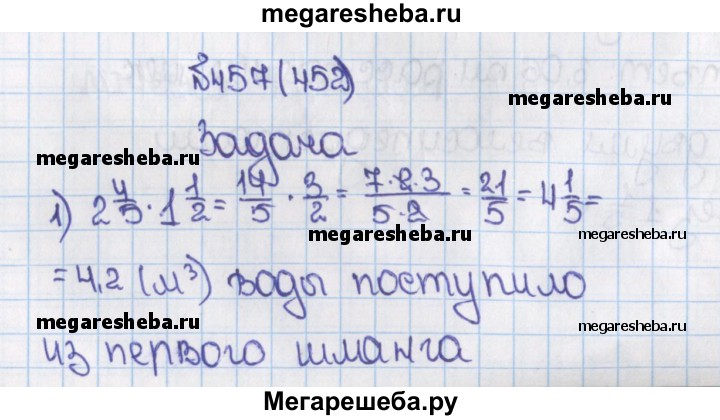 megaresheba.ru
№457(452)
megaresheba.ru
Задача
megaresheba.ru
1) 2 4/5 · 1 1/2 = 14/5 · 3/2 = 7·2·3/5·2 = 21/5 = 4 1/5 =
megaresheba.ru
= 4,2 (м³) воды поступило
megaresheba.ru
megaresheba.ru
из первого шланга
Мегарешеба.ру